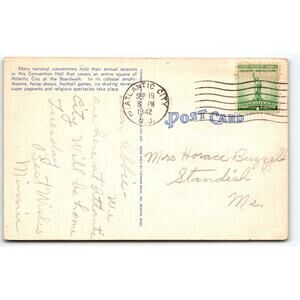 Many national conventions hold their annual sessions
in this Convention Hall that covers an entire square of
Atlantic City at the Boardwalk. In its colossal amphi-
theatre, horse shows, football games, ice skating revues,
super pageants and religious spectacles take place.
ATLANTIC CITY
N.J.
SEP 19
PM
1942
POST CARD
We
are here at Atlantic
City. Will be home
Tuesday
Best Wishes
Minnie
Mrs Horace Buzzell
Standish
Me.